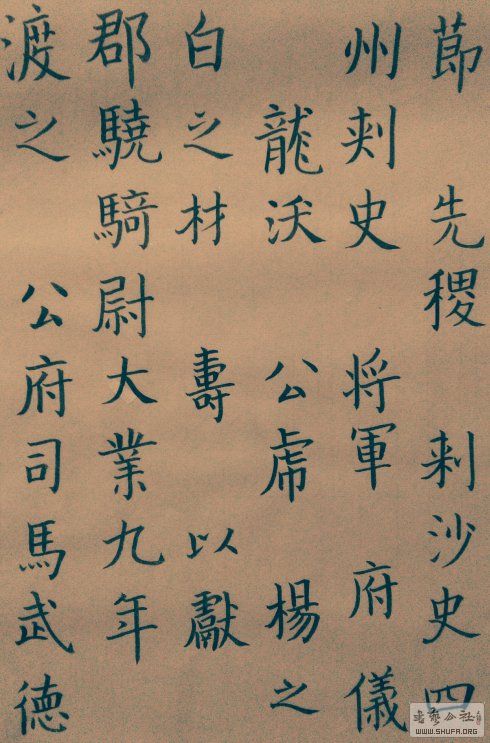 莭 先稷 刺沙史四
州刺史 将軍 府儀
龍沃 公虎 楊之
白之材 壽 以獻
郡驍騎尉大業九年
渡之 公府司馬武德
書藝公社
WWW.SHUFA.ORG